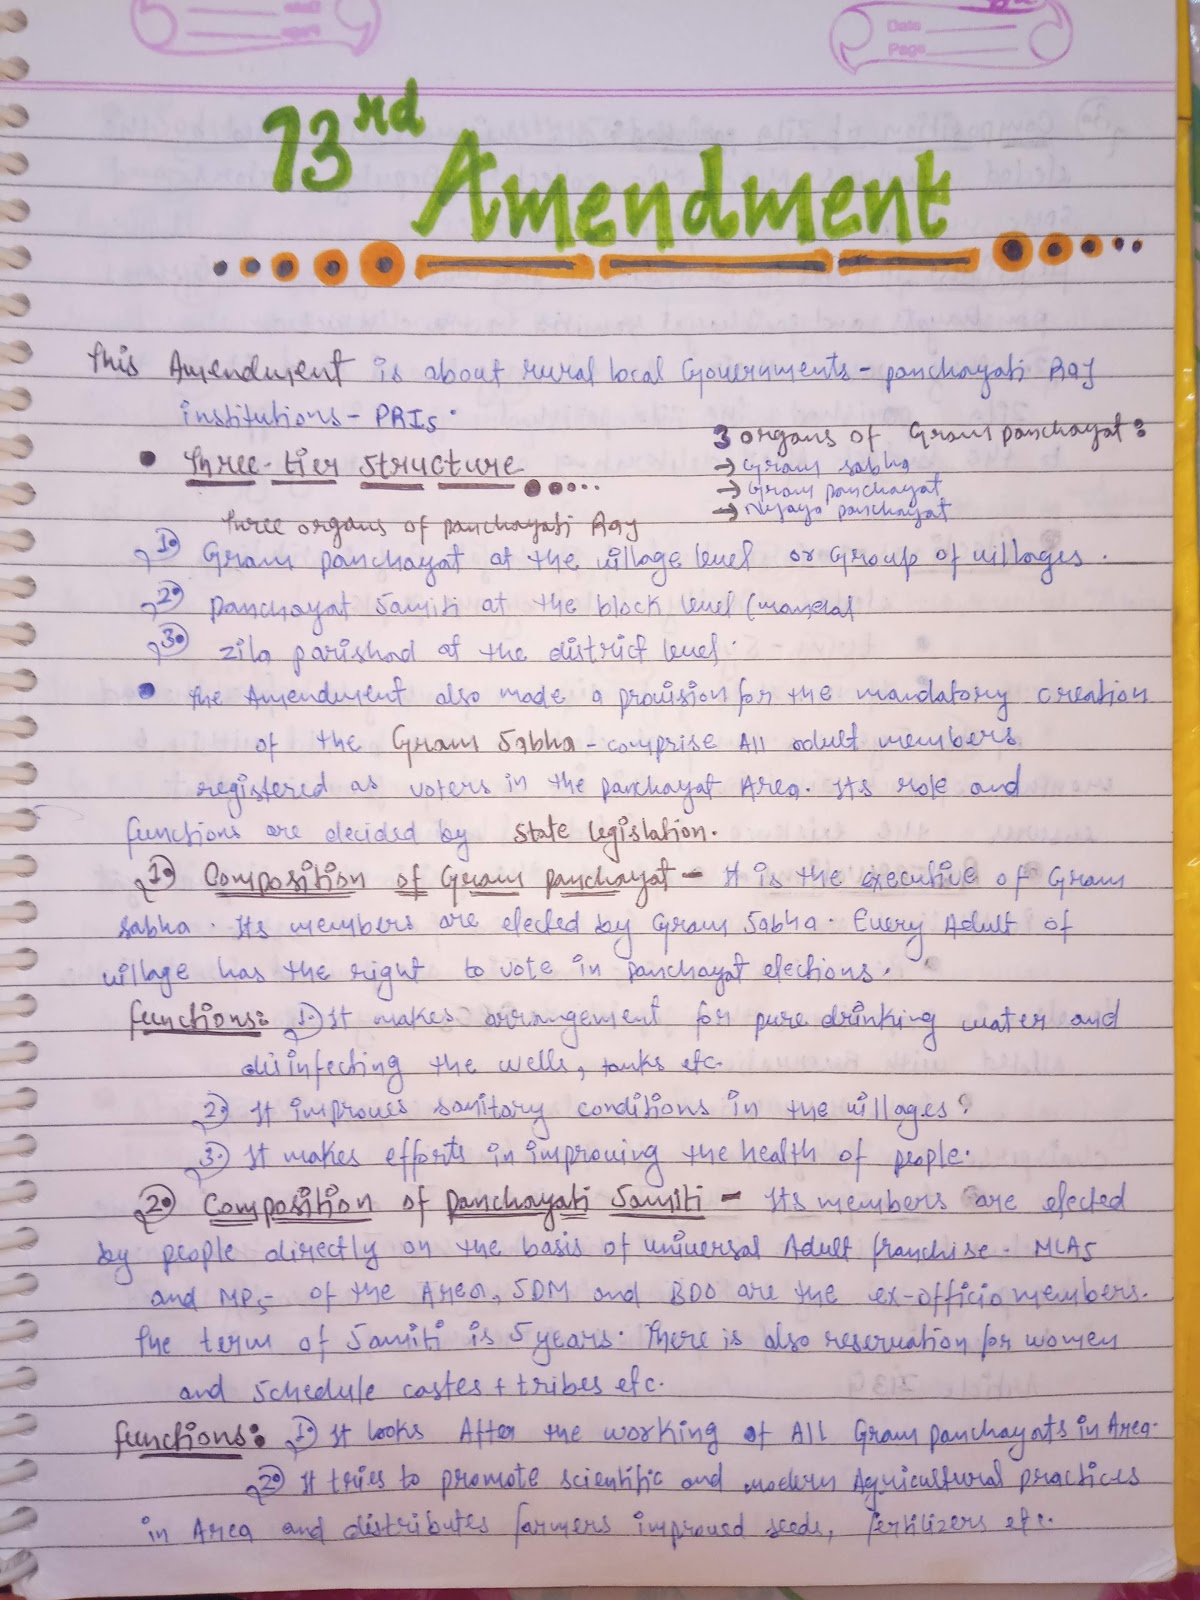 Date
Page
73rd
Amendment
This Amendment is about rural local Governments - panchayati Raj
institutions - PRIs.
3 organs of Gram panchayat:
• Three-tier structure
→ Gram sabha
→ Gram panchayat
→ Nyaya panchayat
Three organs of panchayati Raj
1. Gram panchayat at the village level or Group of villages.
2. panchayat Samiti at the block level (mandal
3. zila parishad at the district level.
• The Amendment also made a provision for the mandatory creation
of the Gram Sabha - comprise All adult members
registered as voters in the panchayat Area. Its role and
functions are decided by state legislation.
1. Composition of Gram panchayat - It is the executive of Gram
sabha. Its members are elected by Gram Sabha. Every Adult of
village has the right to vote in panchayat elections.
functions: 1. It makes arrangement for pure drinking water and
disinfecting the wells, tanks etc.
2. It improves sanitory conditions in the villages.
3. It makes efforts in improving the health of people.
2. Composition of panchayati Samiti - Its members are elected
by people directly on the basis of universal Adult franchise. MLAs
and MPs - of the Area, SDM and BDO are the ex-officio members.
The term of Samiti is 5 years. There is also reservation for women
and Schedule castes + tribes etc.
functions: 1. It looks After the working of All Gram panchayats in Area.
2. It tries to promote scientific and modern Agricultural practices
in Area and distributes farmers improved seeds, fertilizers etc.